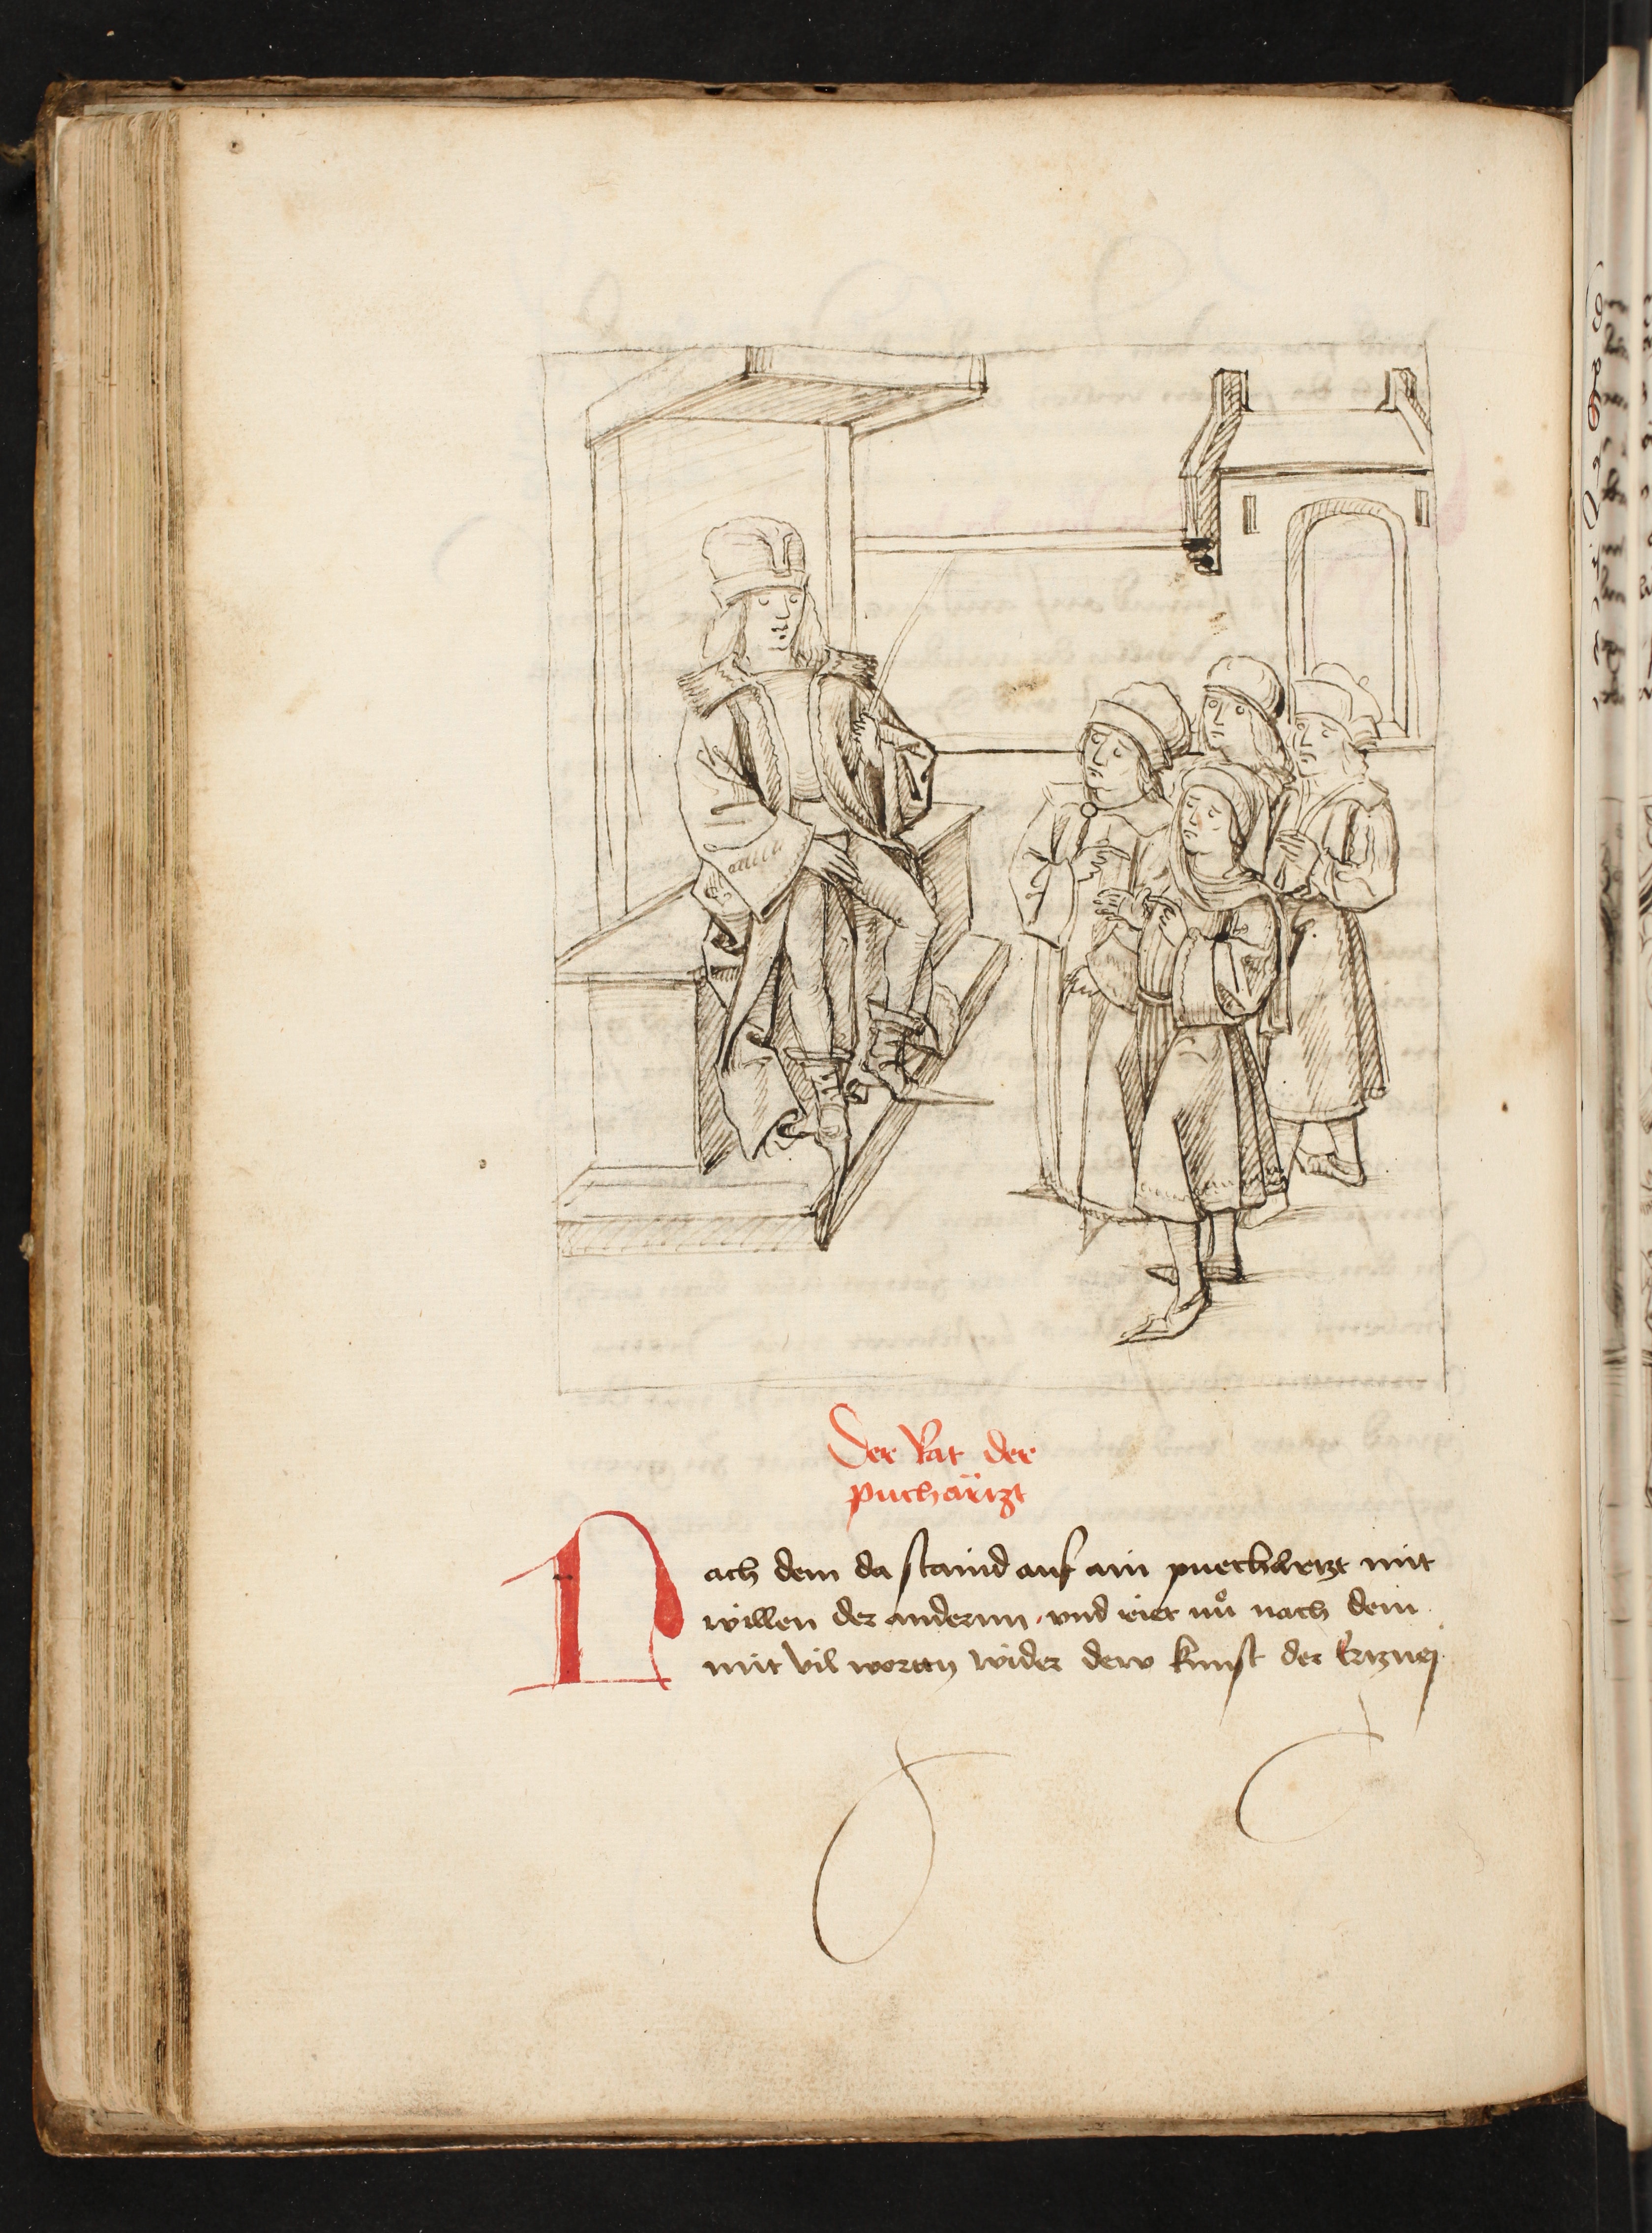 Der Rat der
puchärtzt
Nach dem da staind auf ain puechärtzt mit
willen der andernn und riet nů nach dem
mit vil worttn wider dew kunst der Ertzney